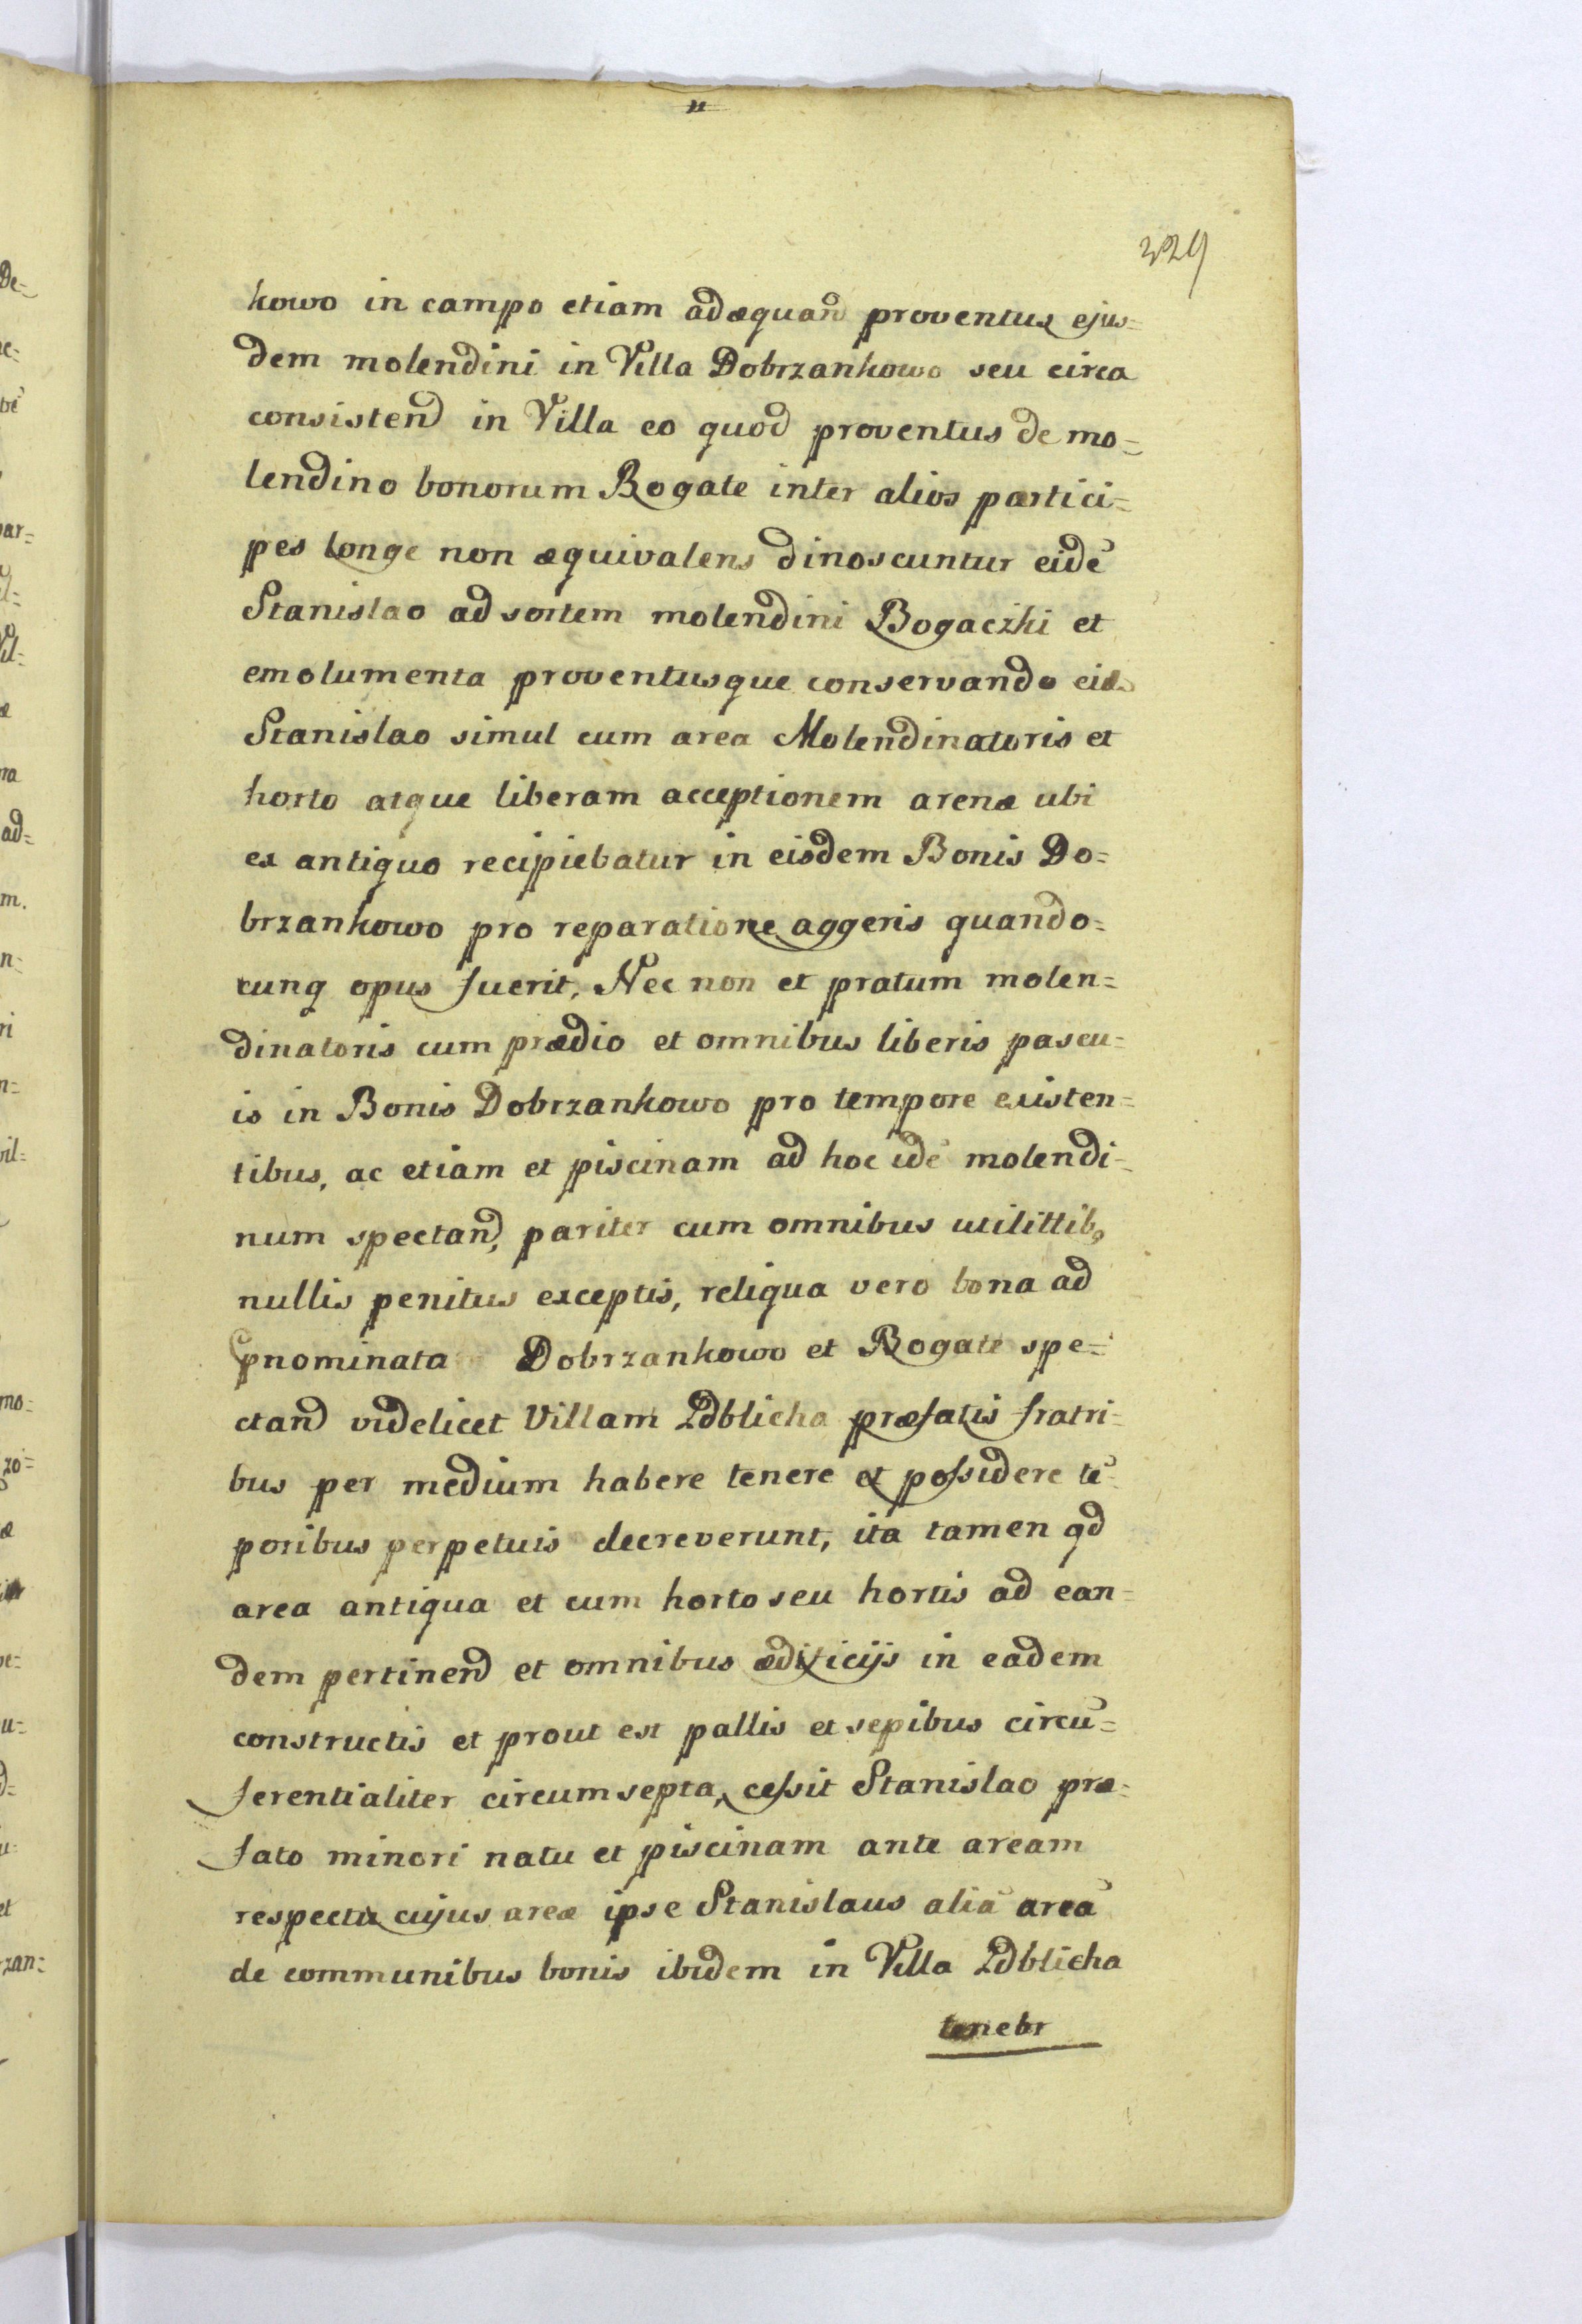 329
kowo in campo etiam adæquand proventus ejus=
dem molendini in Villa Dobrzankowo seu circa
consistend in Villa eo quod proventus de mo=
lendino bonorum Bogate inter alios partici=
pes longe non æquivalens dinoscuntur eidē
Stanislao ad sortem molendini Bogaczki et
emolumenta proventusque conservando eid
Stanislao simul cum area Molendinatoris et
horto atque liberam acceptionem arenæ ubi
ex antiquo recipiebatur in eisdem Bonis Do=
brzankowo pro reparatione aggeris quando=
cunq opus fuerit, Nec non et pratum molen=
dinatoris cum prædio et omnibus liberis pascu=
is in Bonis Dobrzankowo pro tempore existen=
tibus, ac etiam et piscinam ad hoc idē molendi=
num spectand, pariter cum omnibus utilittib,
nullis penitus exceptis, reliqua vero bona ad
pnominata Dobrzankowo et Bogate spe=
ctand videlicet Villam Zdblicha præfatis fratri=
bus per medium habere tenere et possidere tē
poribus perpetuis decreverunt, ita tamen qd
area antiqua et cum horto seu hortis ad ean=
dem pertinend et omnibus ædificijs in eadem
constructis et prout est pallis et sepibus circū=
ferentialiter circumsepta, cessit Stanislao præ=
fato minori natu et piscinam ante aream
respectu cujus areæ ipse Stanislaus aliā areā
de communibus bonis ibidem in Villa Zdblicha
tenebr